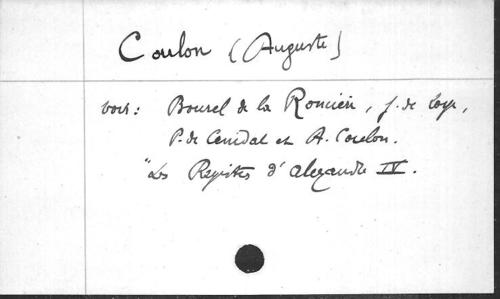 Coulon (Auguste)
voir: Bourel de la Roncière, J. de Loye,
P. de Cenidat et A. Coulon.
"Les Registres d'Alexandre IV.